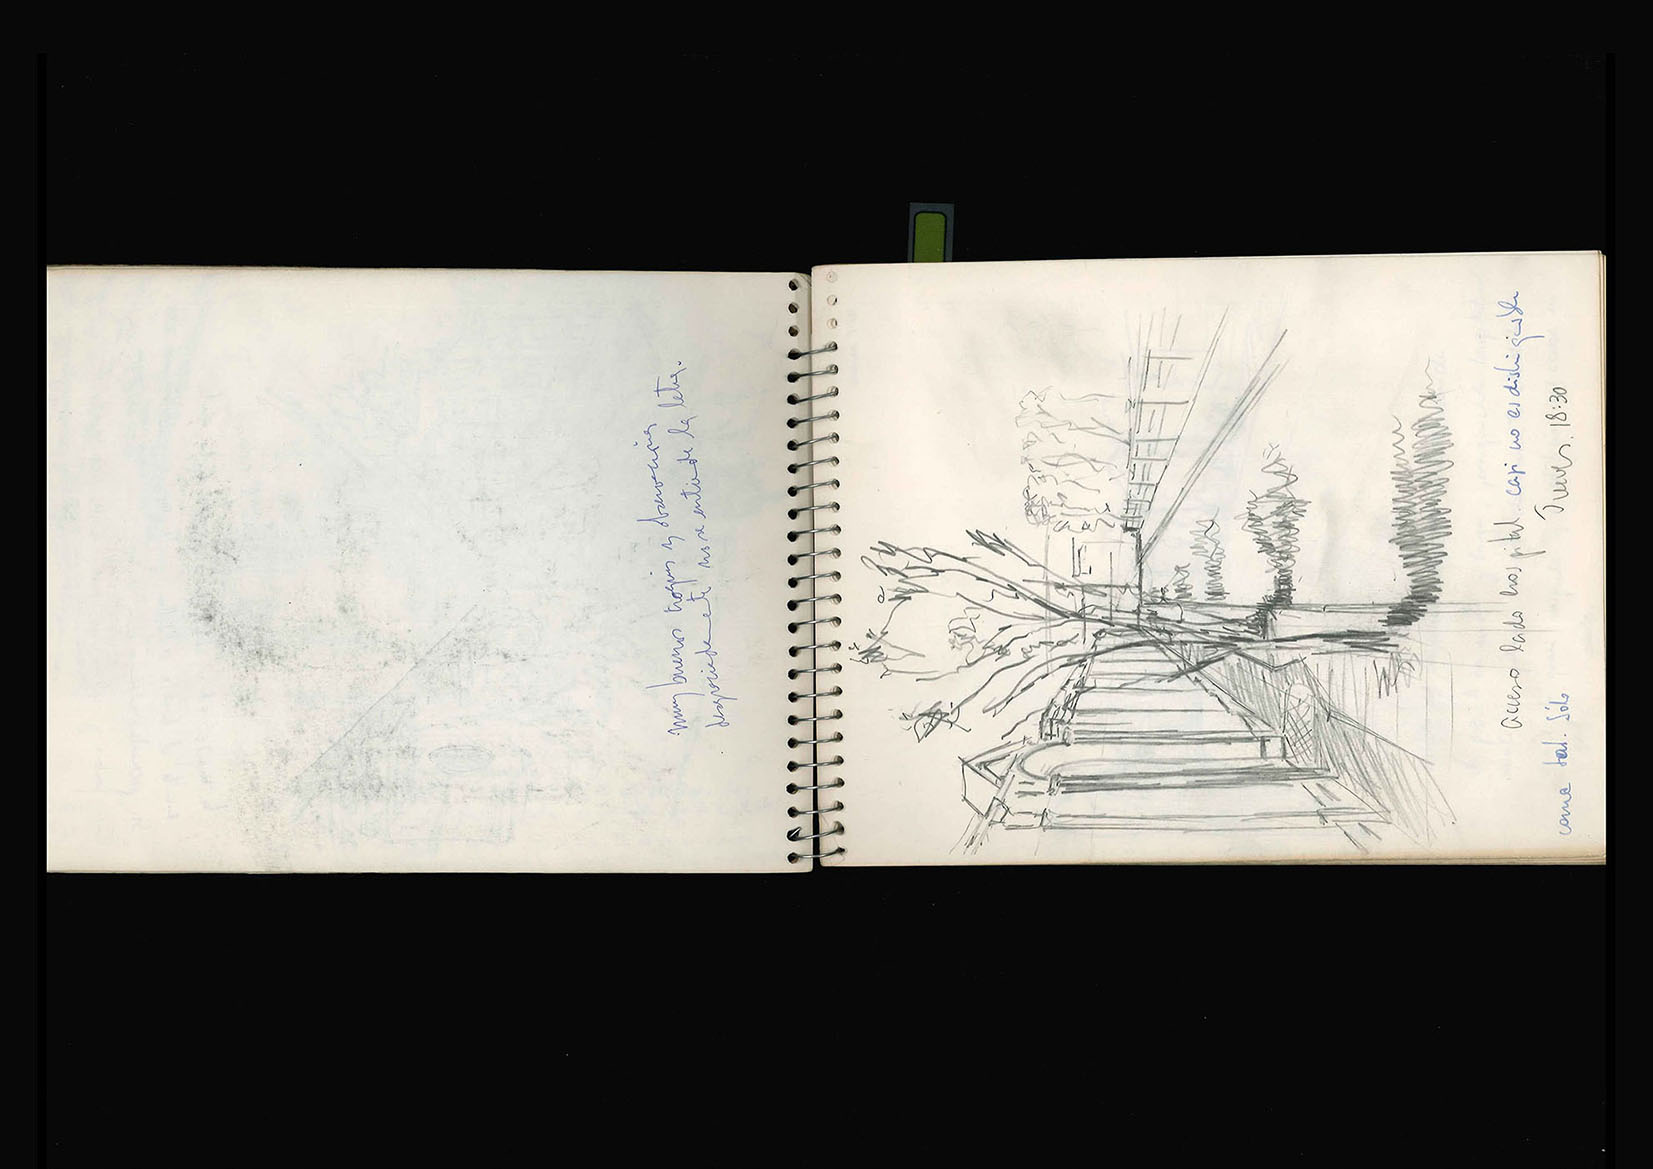 muy buenos croquis y observaciones
desgraciadamente no se entiende la letra.
acceso lado hospital. casi no es distinguible
como tal. Sólo
Jueves. 18:30